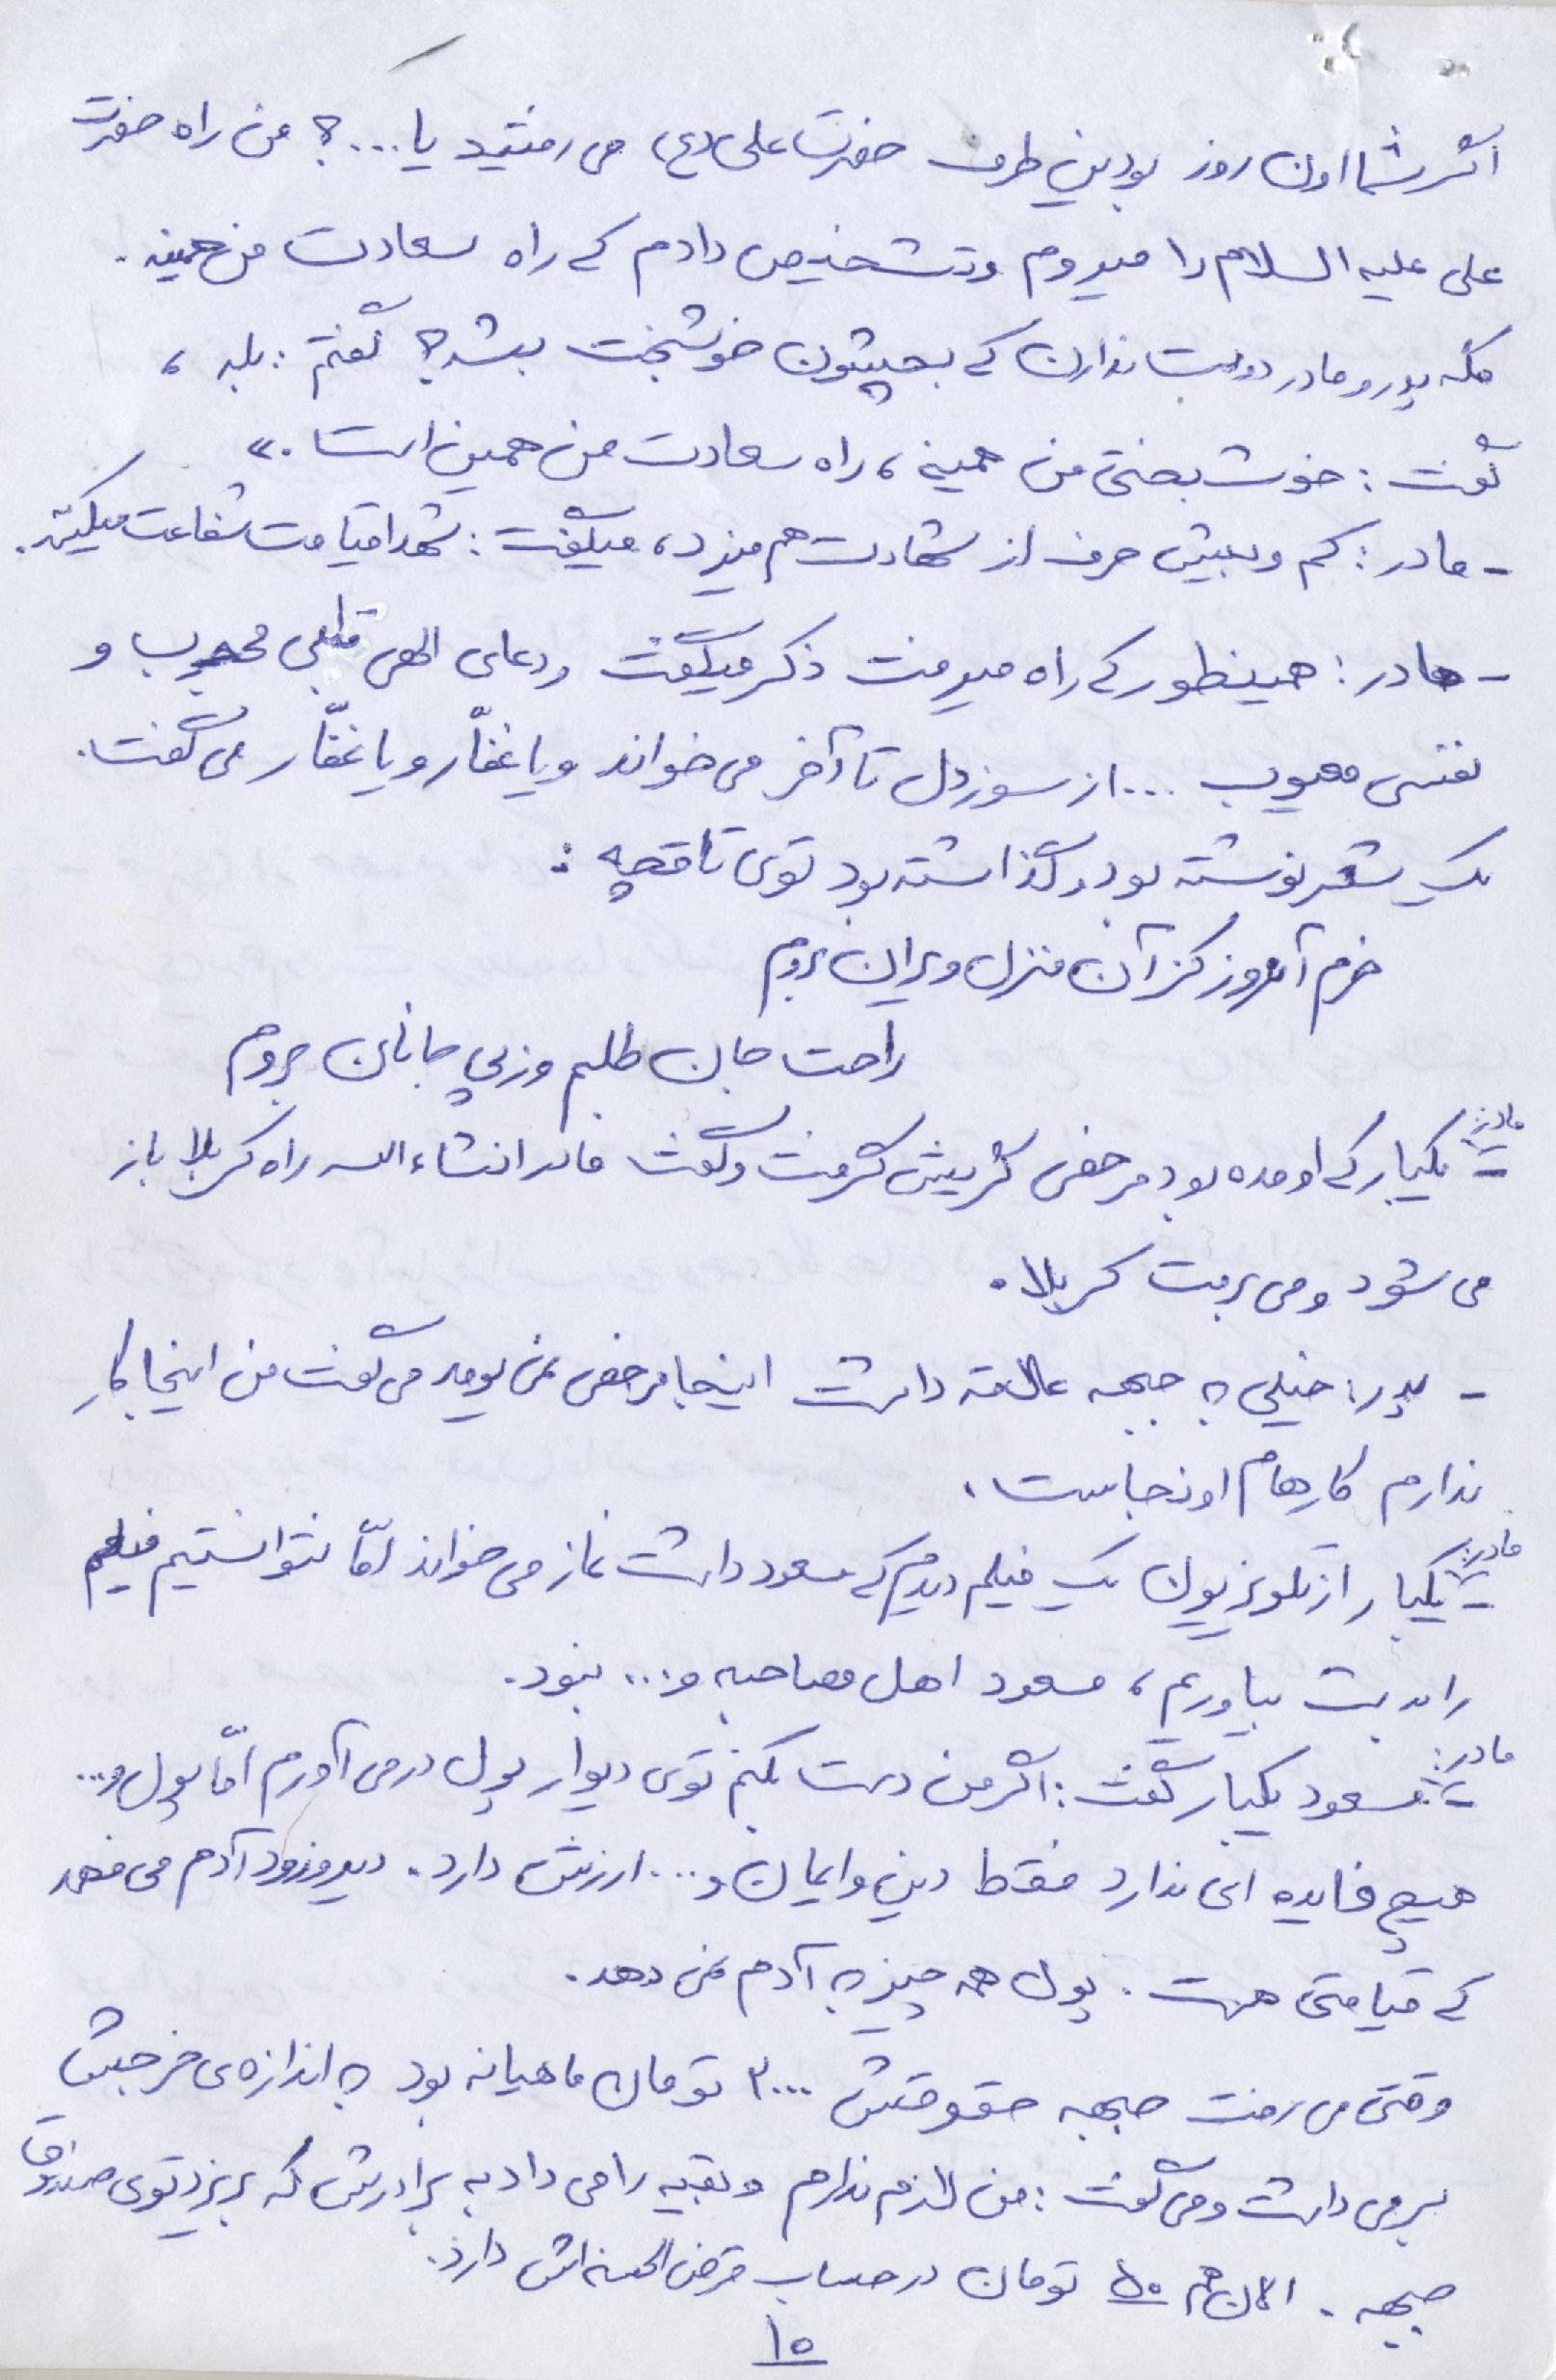 اگر شما اون روز بودین طرف حضرت علی (ع) می رفتید یا ...؟ من راه حضرت
علی علیه السلام را میروم و تشخیص دادم که راه سعادت من همینه.
مگه پدر و مادر دوست ندارن که بچشون خوشبخت بشه؟ گفتم: بله،
گفت: خوشبختی من همینه، راه سعادت من همین است.»
- مادر: کم و بیش حرف از شهادت هم میزد، میگفت: شهدا قیامت شفاعت میکنند.
- مادر: همینطور که راه میرفت ذکر میگفت و دعای الهی قلبی محجوب و
نفسی معیوب ... از سوز دل تا آخر می خواند و یا غفّار و یا غفّار می گفت.
یک شعر نوشته بود و گذاشته بود توی تاقچه:
خرم آنروز کز آن منزل ویران بروم
راحت جان طلبم وز پی جانان بروم
مادر: - یکبار که اومده بود مرخصی گریش گرفت و گفت مادر انشاء الله راه کربلا باز
می شود و می برمت کربلا.
- پدر: خیلی به جبهه علاقه داشت اینجا مرخصی نمی یومد می گفت من اینجا کار
ندارم کارهام اونجاست.
مادر: - یکبار از تلویزیون یک فیلم دیدیم که مسعود داشت نماز می خواند امّا نتوانستیم فیلم
را بدست بیاوریم، مسعود اهل مصاحبه و... نبود.
مادر: - مسعود یکبار گفت: اگر من دست بکنم توی دیوار پول درمی آورم امّا پول و...
هیچ فایده ای ندارد فقط دین و ایمان و... ارزش دارد. دیر و زود آدم می فهمد
که قیامتی هست. پول همه چیز به آدم نمی دهد.
وقتی می رفت جبهه حقوقش ۲۰۰۰ تومان ماهیانه بود به اندازه ی خرجیش
برمی داشت و می گفت: من لازم ندارم و بقیه را می داد به برادرش که بریزد توی صندوق
جبهه. الان هم ۵۰ تومان در حساب قرض الحسنه اش دارد.
۱۵